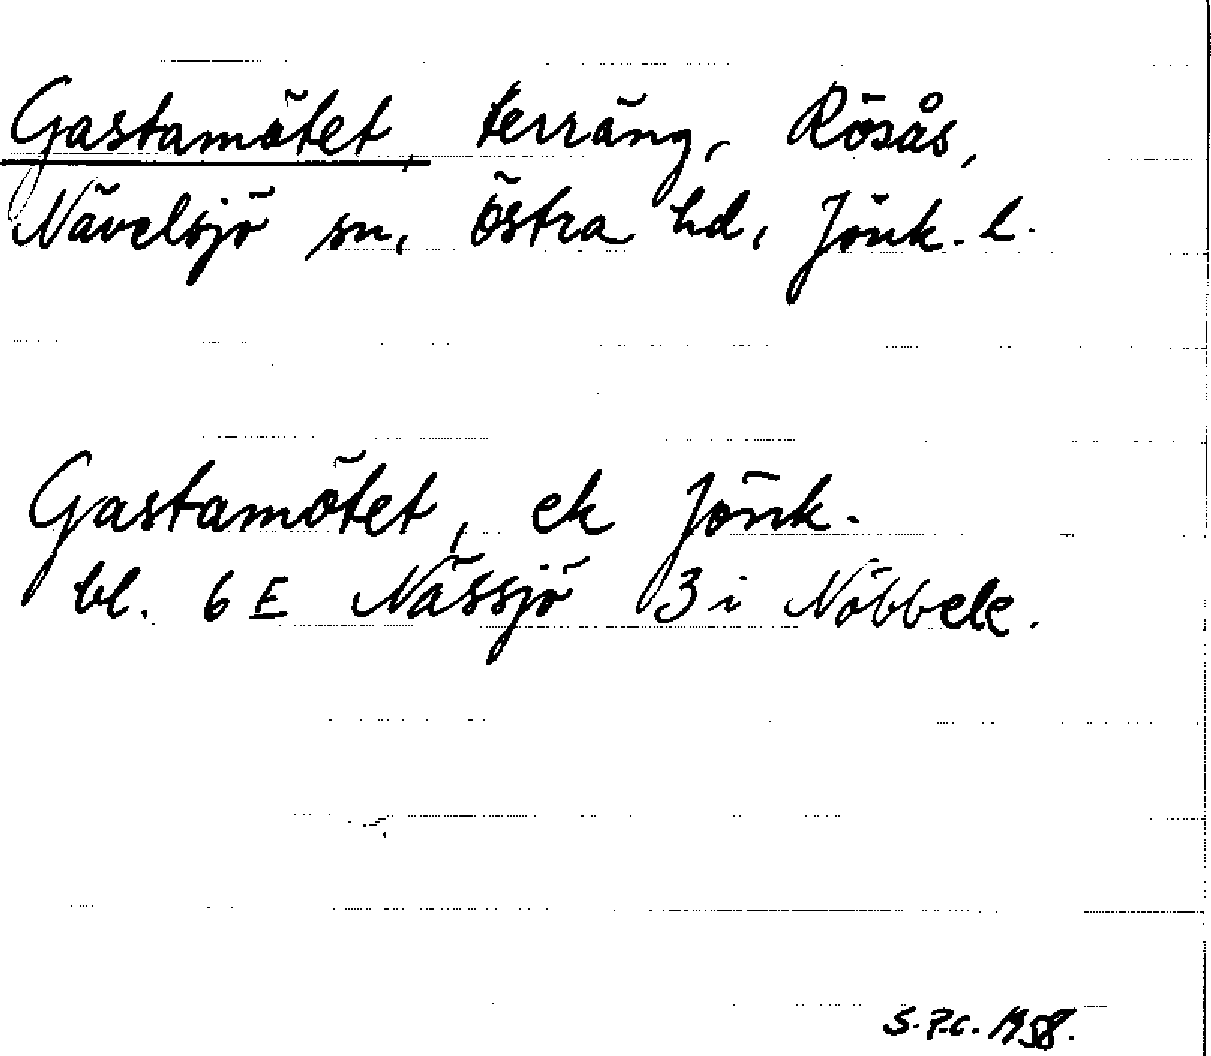 Gastamötet, terräng, Rösås,
Nävelsjö sn, Östra hd, Jönk. l.
Gastamötet, ek Jönk.
bl. 6 E Nässjö 3 i Nöbbele.
S. P.C. 1958.